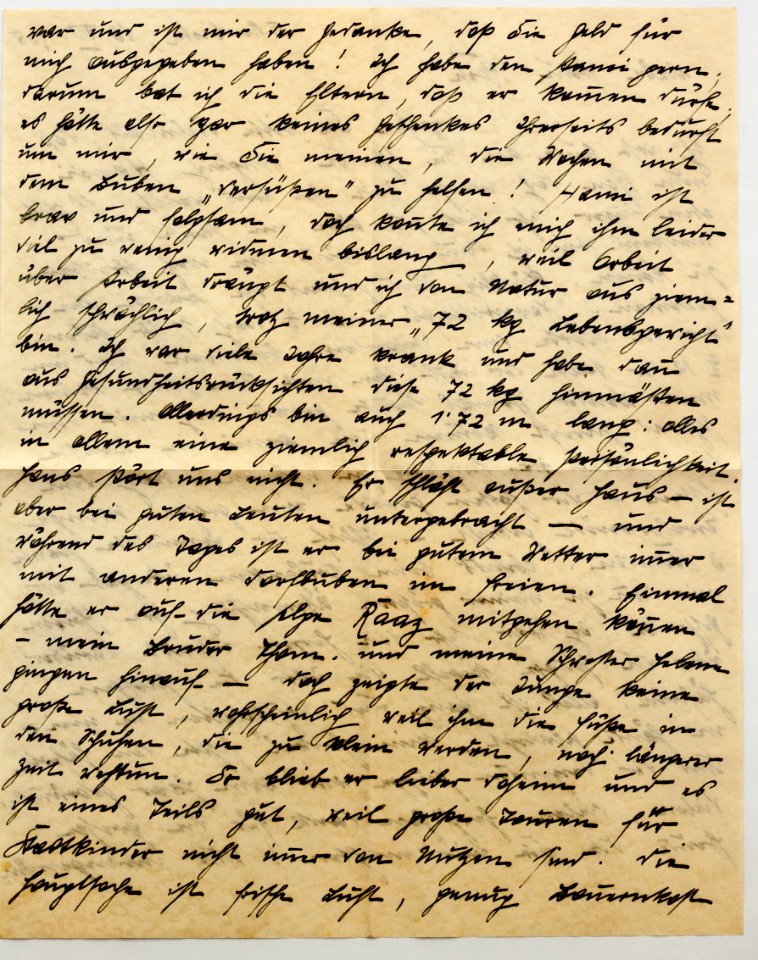 war und ist mir der Gedanke, daß Sie Geld für
mich ausgegeben haben! Ich habe den Hansi gern,
darum bat ich die Eltern, daß er kommen dürfe,
es hätte also gar keines Geschenkes Ihrerseits bedurft
um mir, wie Sie meinen, die Wochen mit
dem Buben „versüßen" zu helfen! Hansi ist
brav und folgsam, doch konnte ich mich ihm leider
viel zu wenig widmen bislang, weil Arbeit
über Arbeit drängt und ich von Natur aus ziem=
lich schwächlich, trotz meiner „72 kg Lebensgewicht"
bin. Ich war viele Jahre krank und habe dann
aus Gesundheitsrücksichten diese 72 kg hinmästen
müssen. Allerdings bin auch 1'72 m lang: alles
in allem eine ziemlich respektable Persönlichkeit.
Hans stört uns nicht. Er schläft außer Haus – ist
aber bei guten Leuten untergebracht – und
während des Tages ist er bei gutem Wetter immer
mit anderen Dorfbuben im Freien. Einmal
hätte er auf die Alpe Raaz mitgehen können
– mein Bruder Thom. und meine Schwester Helene
gingen hinauf – doch zeigte der Junge keine
große Lust, wahrscheinlich weil ihm die Füße in
den Schuhen, die zu klein werden, nach längerer
Zeit wehtun. So blieb er lieber daheim und es
ist eines Teils gut, weil große Touren für
Stadtkinder nicht immer von Nutzen sind. Die
Hauptsache ist frische Luft, genug Bauernkost